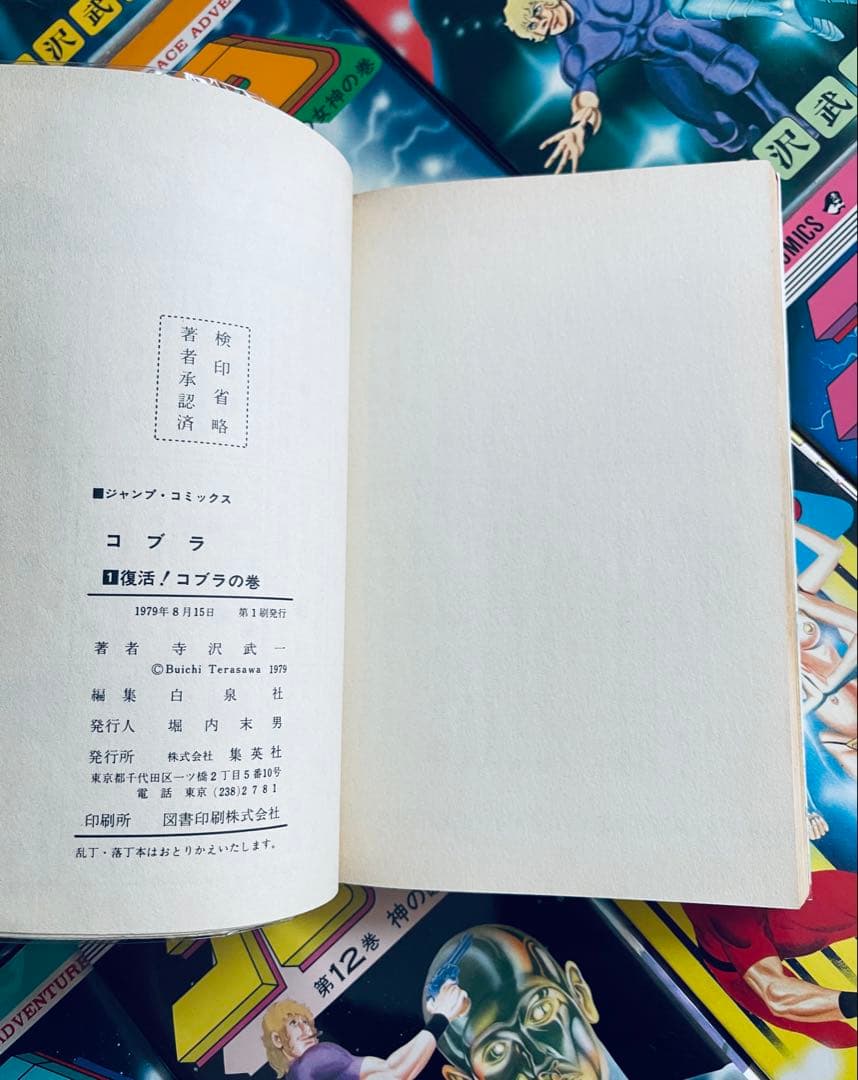 検印省略
著者承認済
■ジャンプ・コミックス
コブラ
1復活!コブラの巻
1979年8月15日 第1刷発行
著者 寺沢武一
©Buichi Terasawa 1979
編集 白泉社
発行人 堀内末男
発行所 株式会社 集英社
東京都千代田区一ツ橋2丁目5番10号
電話 東京(238)2781
印刷所 図書印刷株式会社
乱丁・落丁本はおとりかえいたします。
沢武
ACE ADVE
女神の巻
沢武
OMICS
第12巻 神の
ADVENTURE